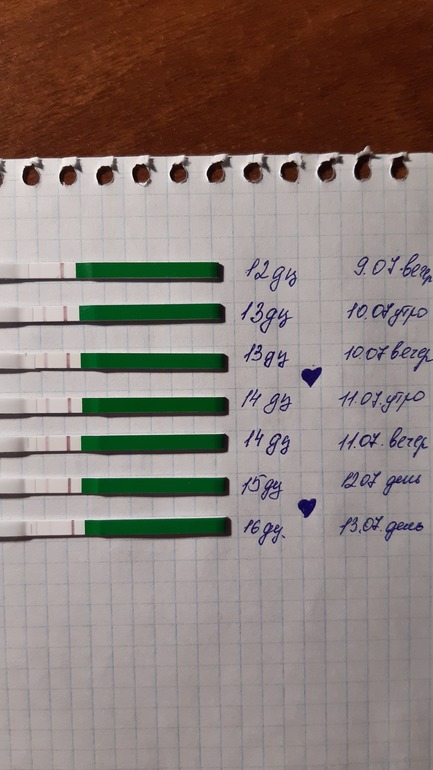 12дц 9.07 вечер
13дц 10.07 утро
13дц 10.07 вечер
14 дц 11.07. утро
14 дц 11.07. вечер
15дц 12.07 день
16дц. 13.07. день